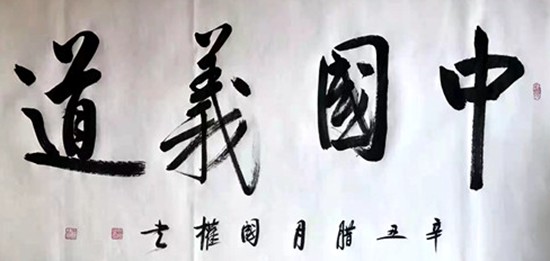 中國義道
辛丑腊月國權书